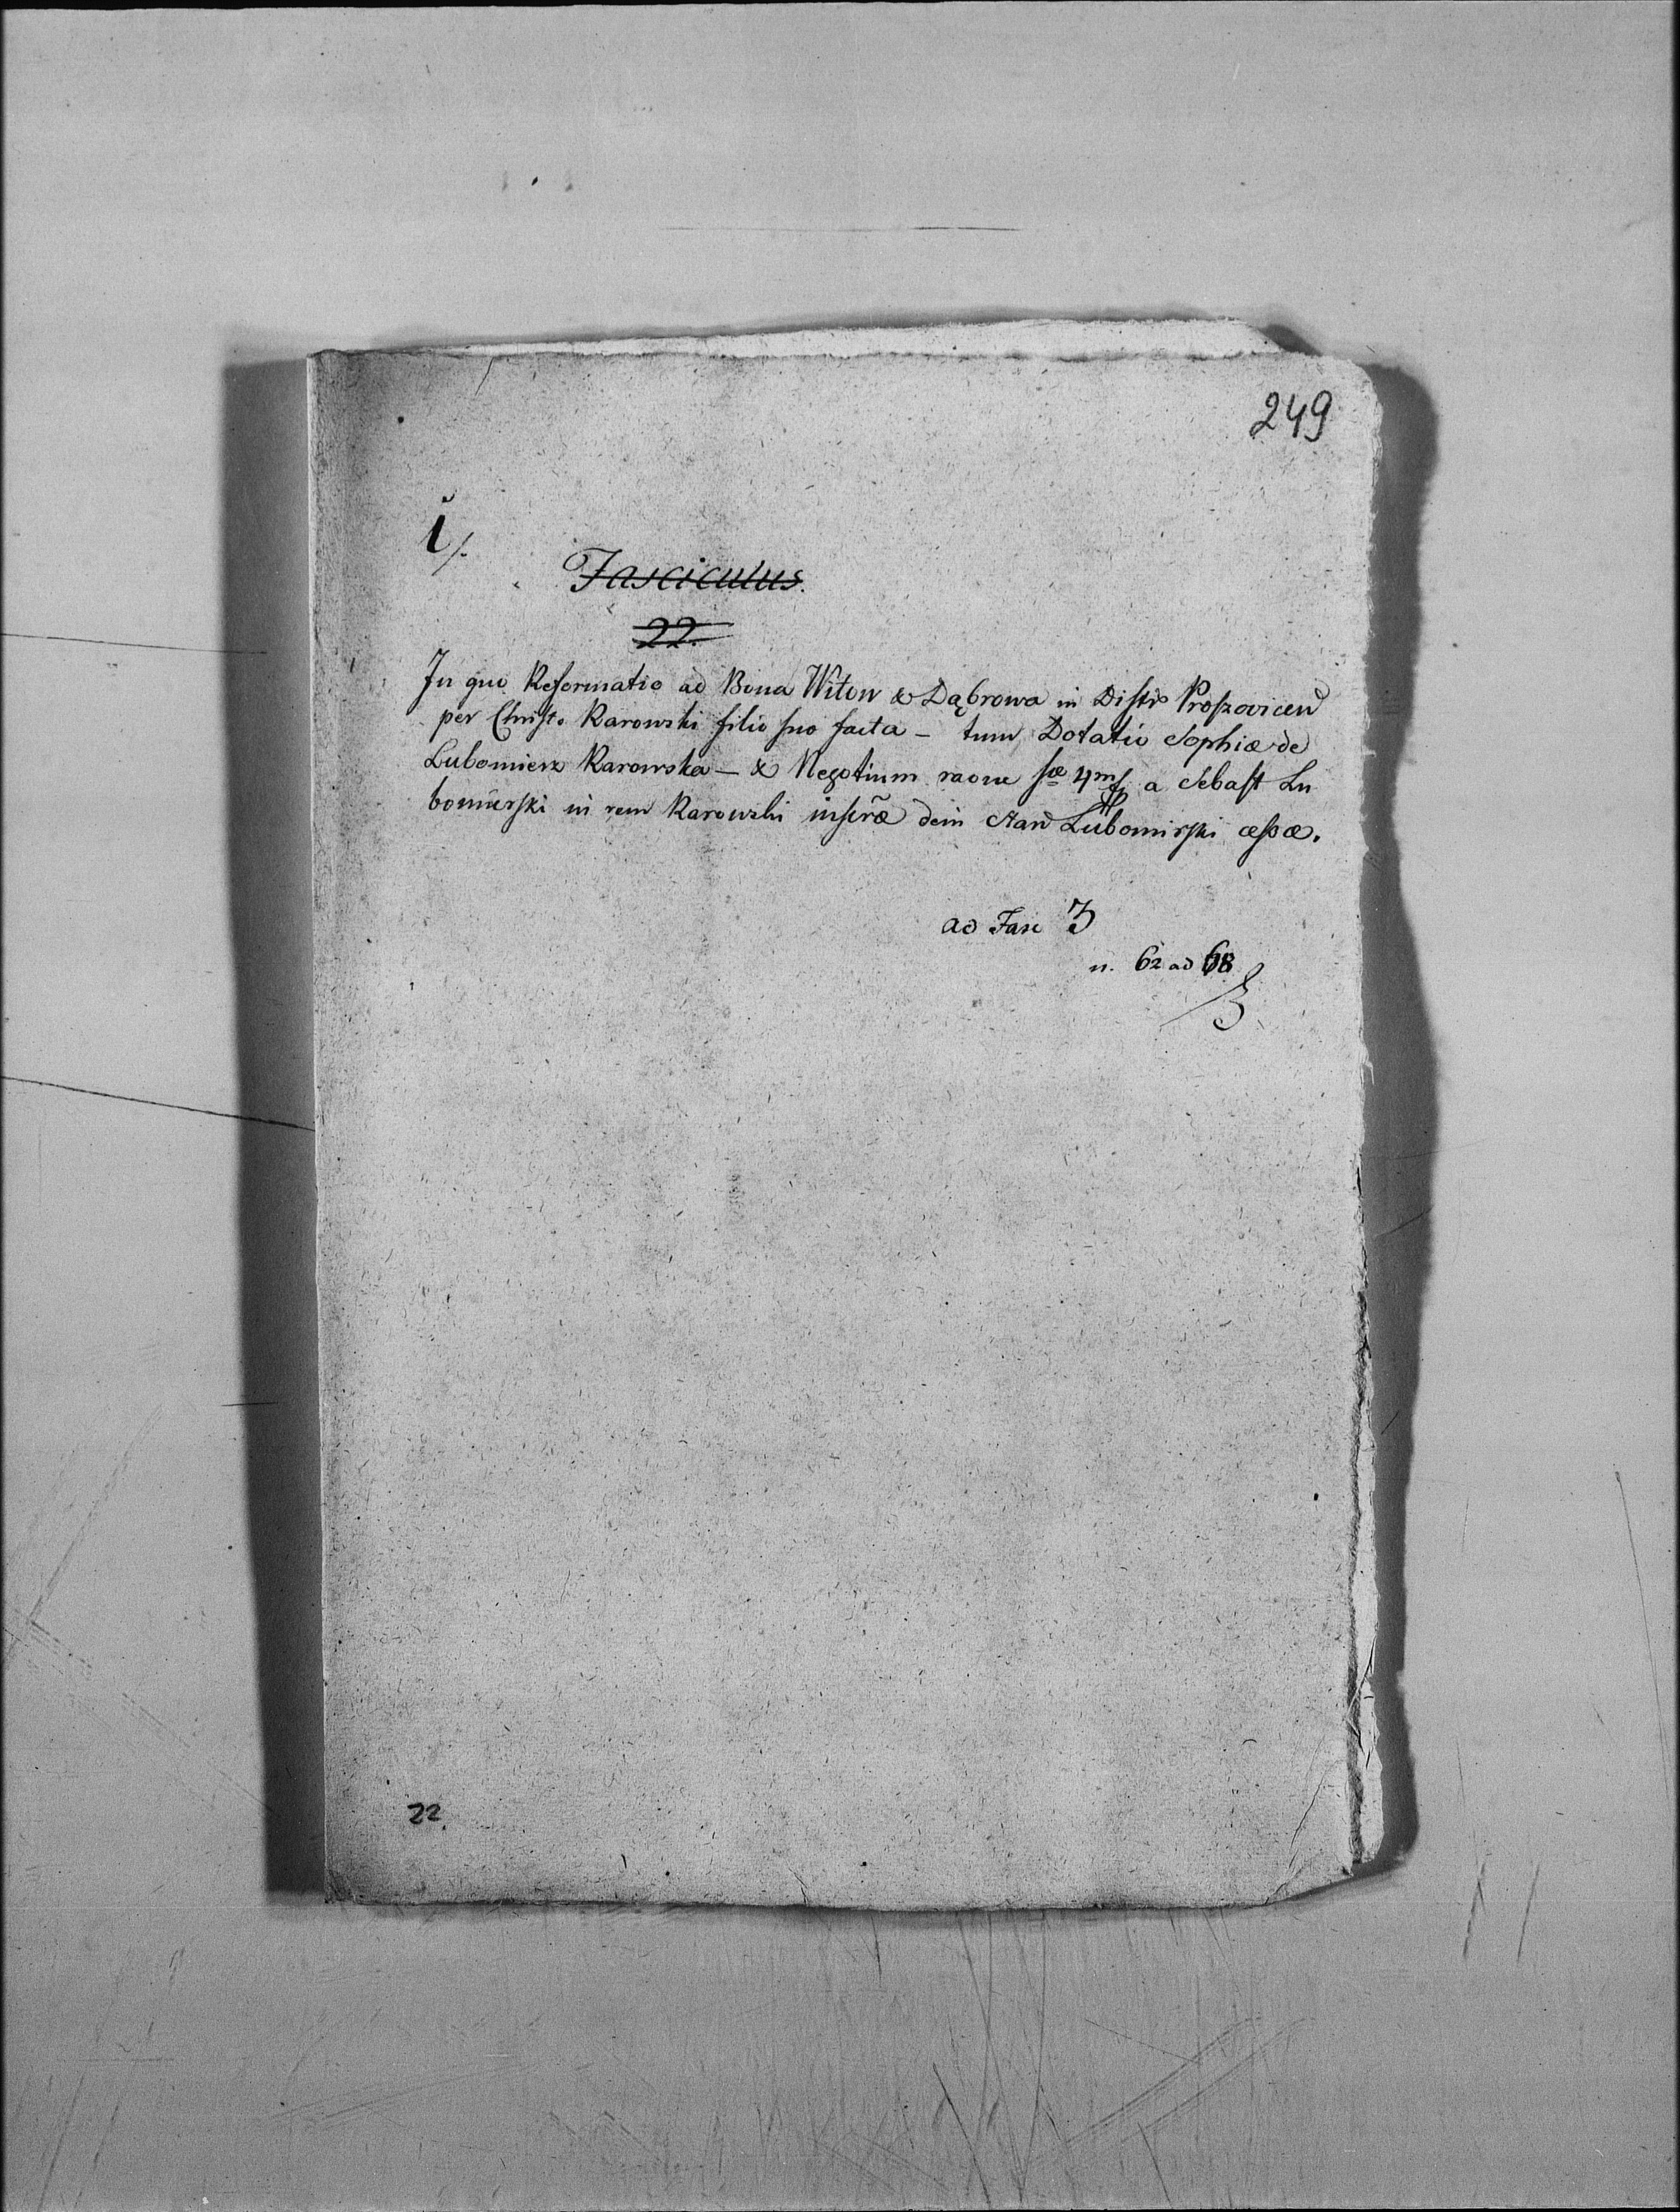 249
i/.
Fasciculus.
22.
In quo Reformatio ad Bona Witow & Dąbrowa in Distr Proszovicen
per Christo Karowski filio suo facta – tum Dotatio Sophiæ de
Lubomierz Karowska – & Negotium raone sæ 4m f a Sebast Lu
bomirski in rem Karowski inscræ dein Lubomirski
ad Fasc 3
n. 62 ad 68
22.